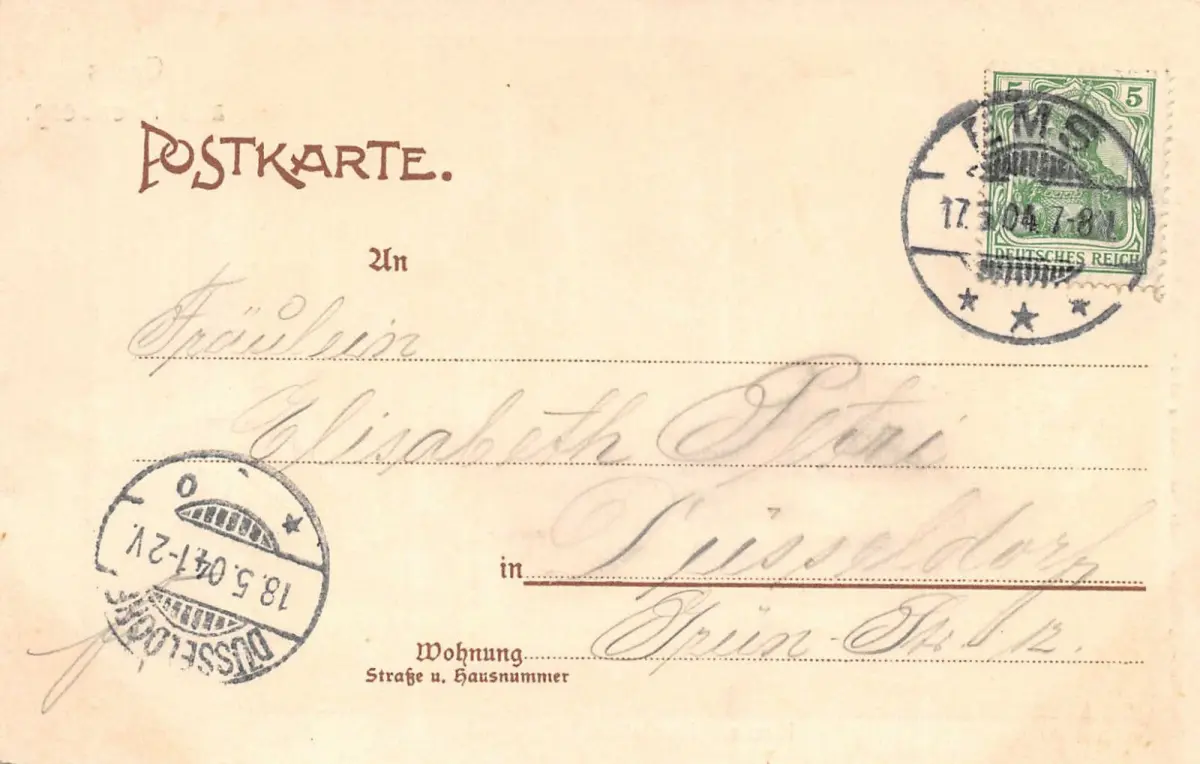 POSTKARTE.
5 5
EMS
17.5.04. 7-8 N.
DEUTSCHES REICH
An
Fräulein
Elisabeth Petri
in Düsseldorf
Grün-Str.
Wohnung
Straße u. Hausnummer
DÜSSELDORF
18.5.04. 1-2 V.
* O